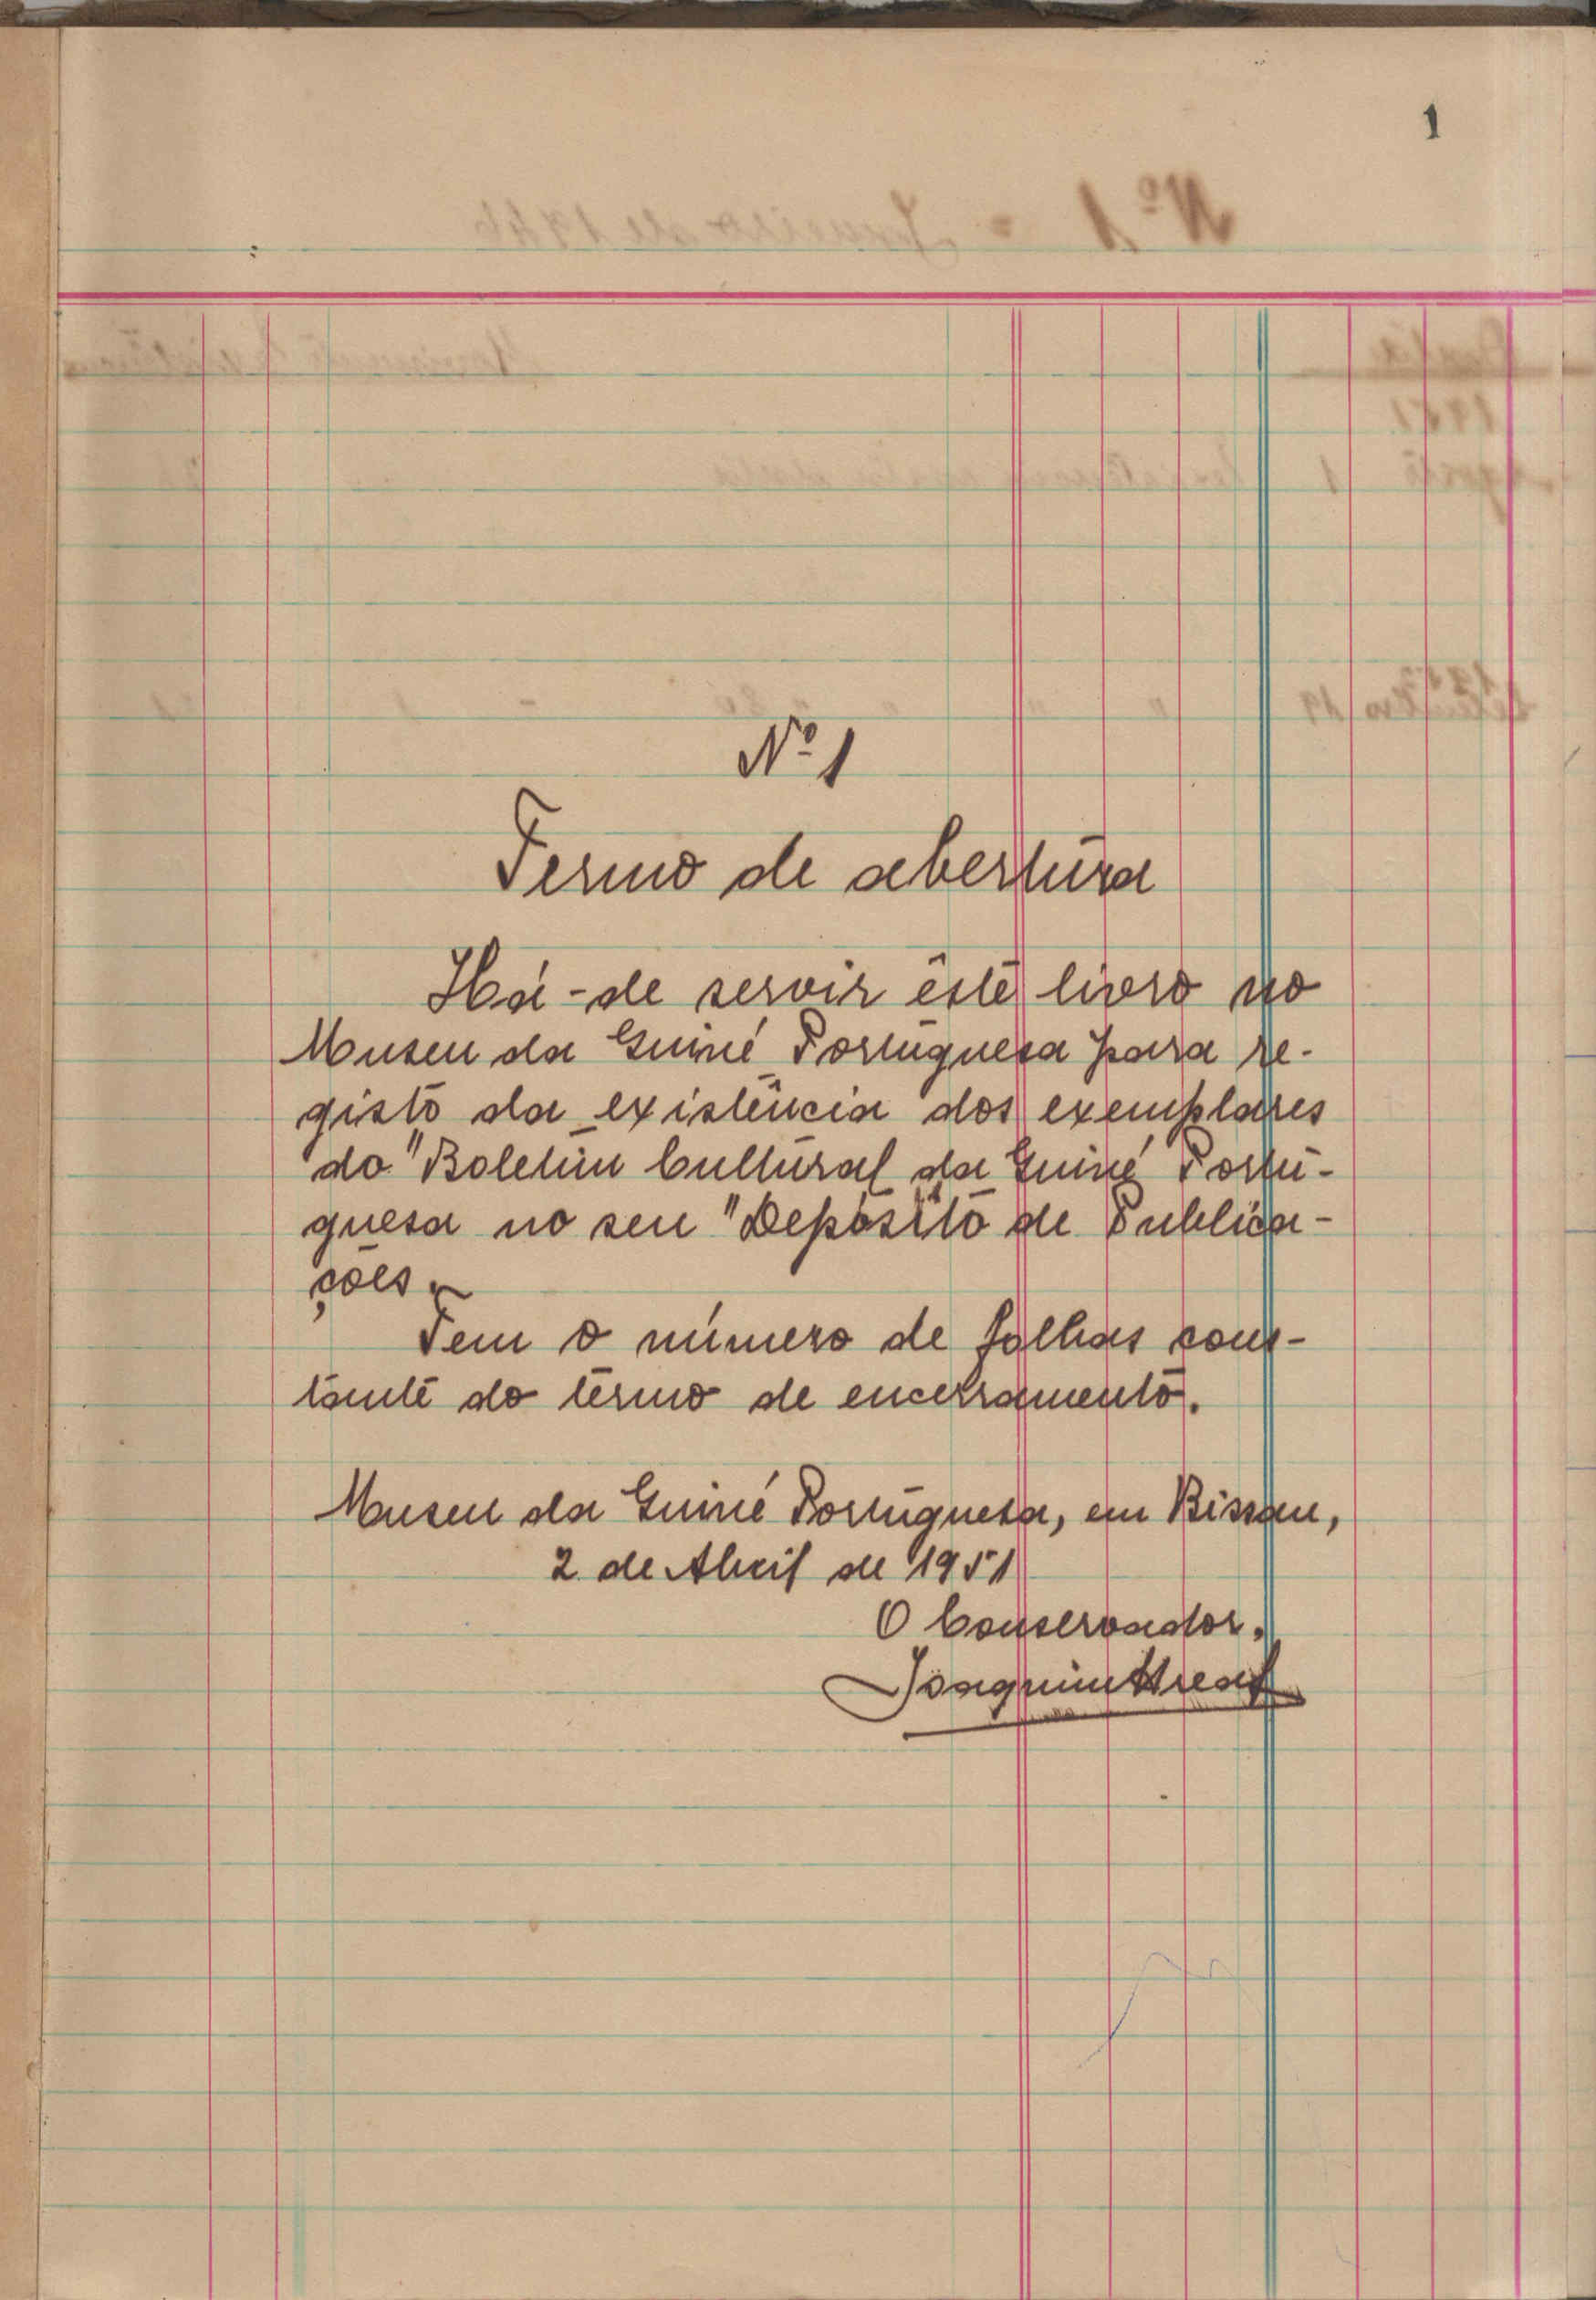 1
Nº 1
Termo de abertura
Há-de servir êste livro no
Museu da Guiné Portuguesa para re-
gisto da existência dos exemplares
do "Boletim Cultural da Guiné Portu-
guesa no seu "Depósito de Publica-
ções.
Tem o número de folhas cons-
tante do têrmo de encerramento.
Museu da Guiné Portuguesa, em Bissau,
2 de Abril de 1951
O Conservador,
Joaquim Areal